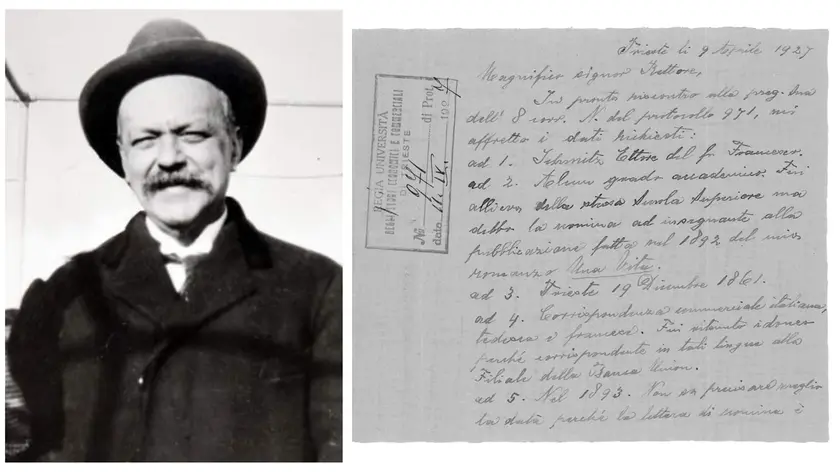 Trieste li 9 Aprile 1927
Magnifico signor Rettore,
In pronto riscontro alla preg. Sua
dell' 8 corr. N. del protocollo 971, mi
affretto i dati richiesti:
ad 1. Schmitz Ettore del fu Francesco.
ad 2. Alcun grado accademico. Fui
allievo della stessa Scuola Superiore ma
debbo la nomina ad insegnante alla
pubblicazione fatta nel 1892 del mio
romanzo Una Vita.
ad 3. Trieste 19 Dicembre 1861.
ad 4. Corrispondenza commerciale italiana,
tedesca e francese. Fui ritenuto idoneo
perché corrispondente in tali lingue alla
Filiale della Banca Union.
ad 5. Nel 1893. Non so precisare meglio
la data perché la lettera di nomina è
REGIA UNIVERSITÀ
DEGLI STUDI ECONOMICI E COMMERCIALI
DI TRIESTE
No 971 di Prot.
data 11. IV. 1927